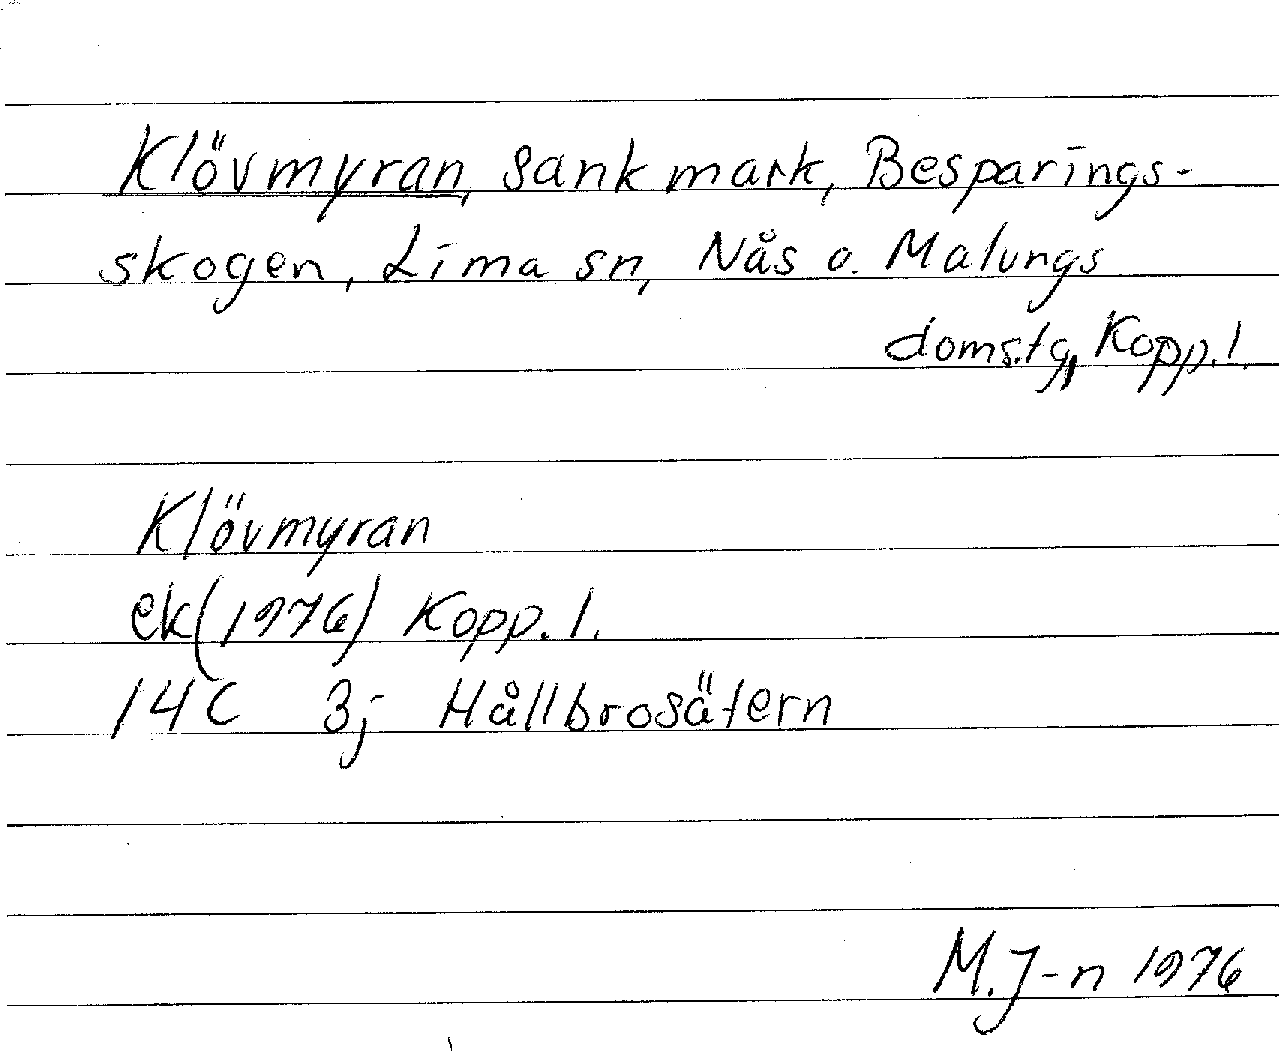 Klövmyran, sank mark, Besparings-
skogen, Lima sn, Nås o. Malungs
domstg, Kopp.l.
Klövmyran
ek (1976) Kopp.l.
14C 3j Hållbrosätern
M.J-n 1976